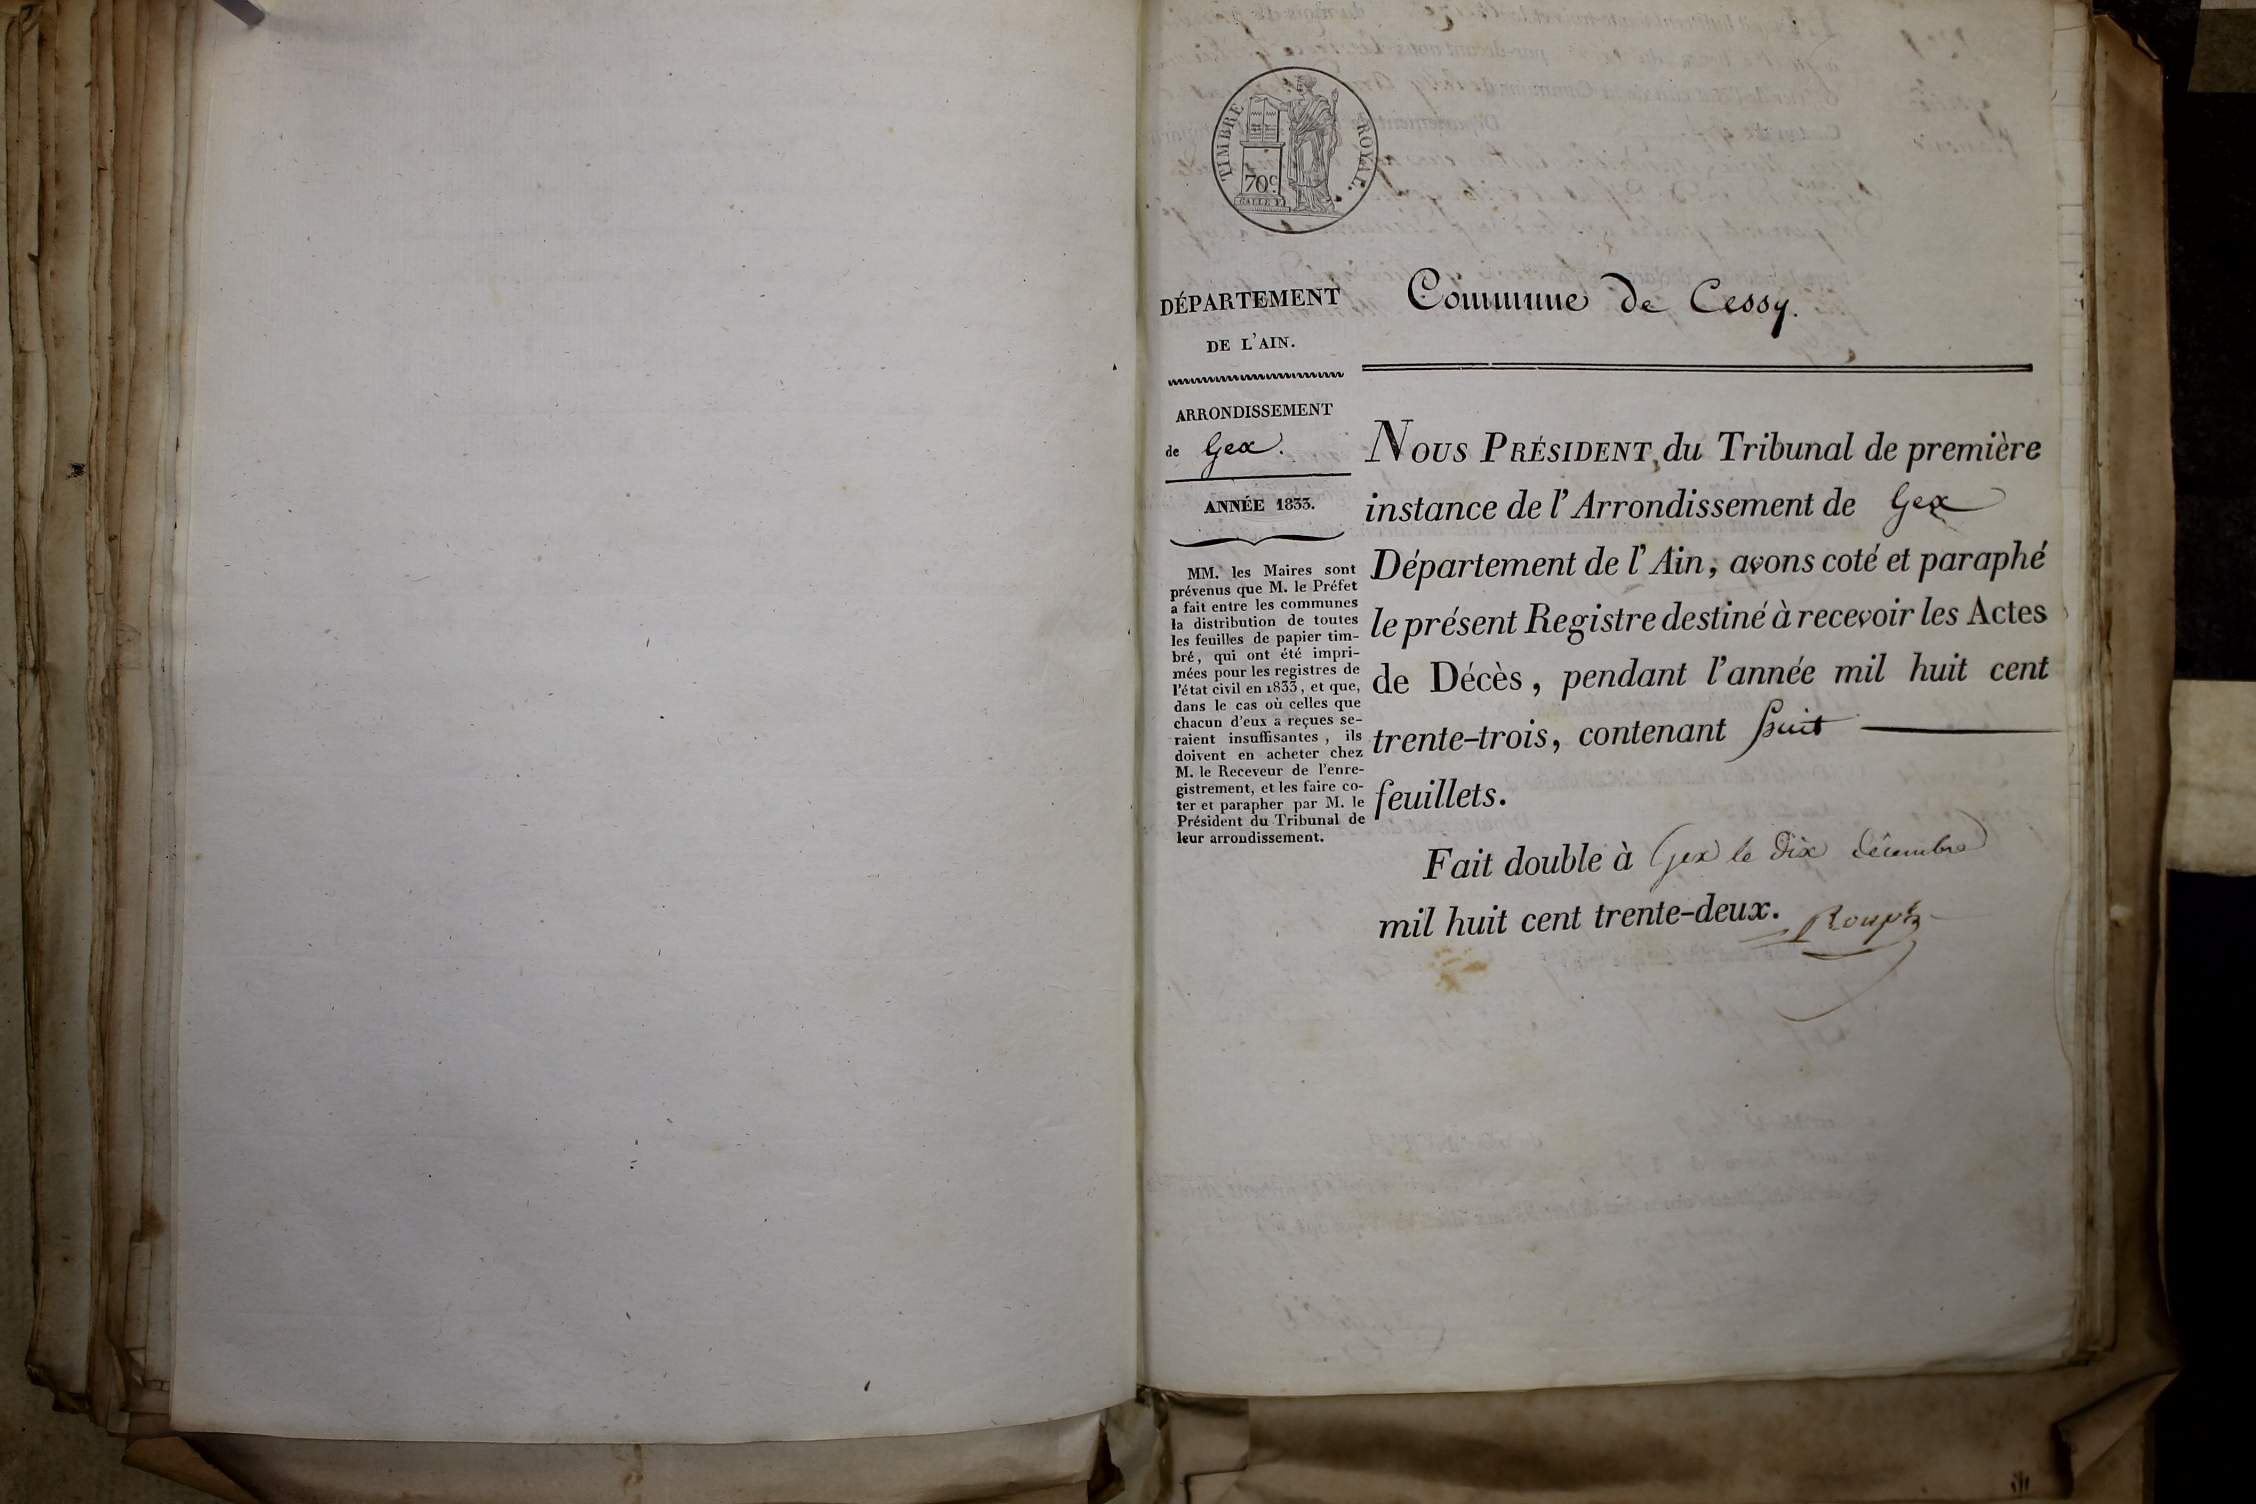 TIMBRE ROYAL.
70c.
DÉPARTEMENT
DE L'AIN.
ARRONDISSEMENT
de Gex.
ANNÉE 1833.
MM. les Maires sont
prévenus que M. le Préfet
a fait entre les communes
la distribution de toutes
les feuilles de papier tim-
bré, qui ont été impri-
mées pour les registres de
l'état civil en 1833, et que,
dans le cas où celles que
chacun d'eux a reçues se-
raient insuffisantes, ils
doivent en acheter chez
M. le Receveur de l'enre-
gistrement, et les faire co-
ter et parapher par M. le
Président du Tribunal de
leur arrondissement.
Commune de Cessy.
NOUS PRÉSIDENT, du Tribunal de première
instance de l'Arrondissement de Gex
Département de l'Ain, avons coté et paraphé
le présent Registre destiné à recevoir les Actes
de Décès, pendant l'année mil huit cent
trente-trois, contenant huit
feuillets.
Fait double à Gex le dix décembre
mil huit cent trente-deux.